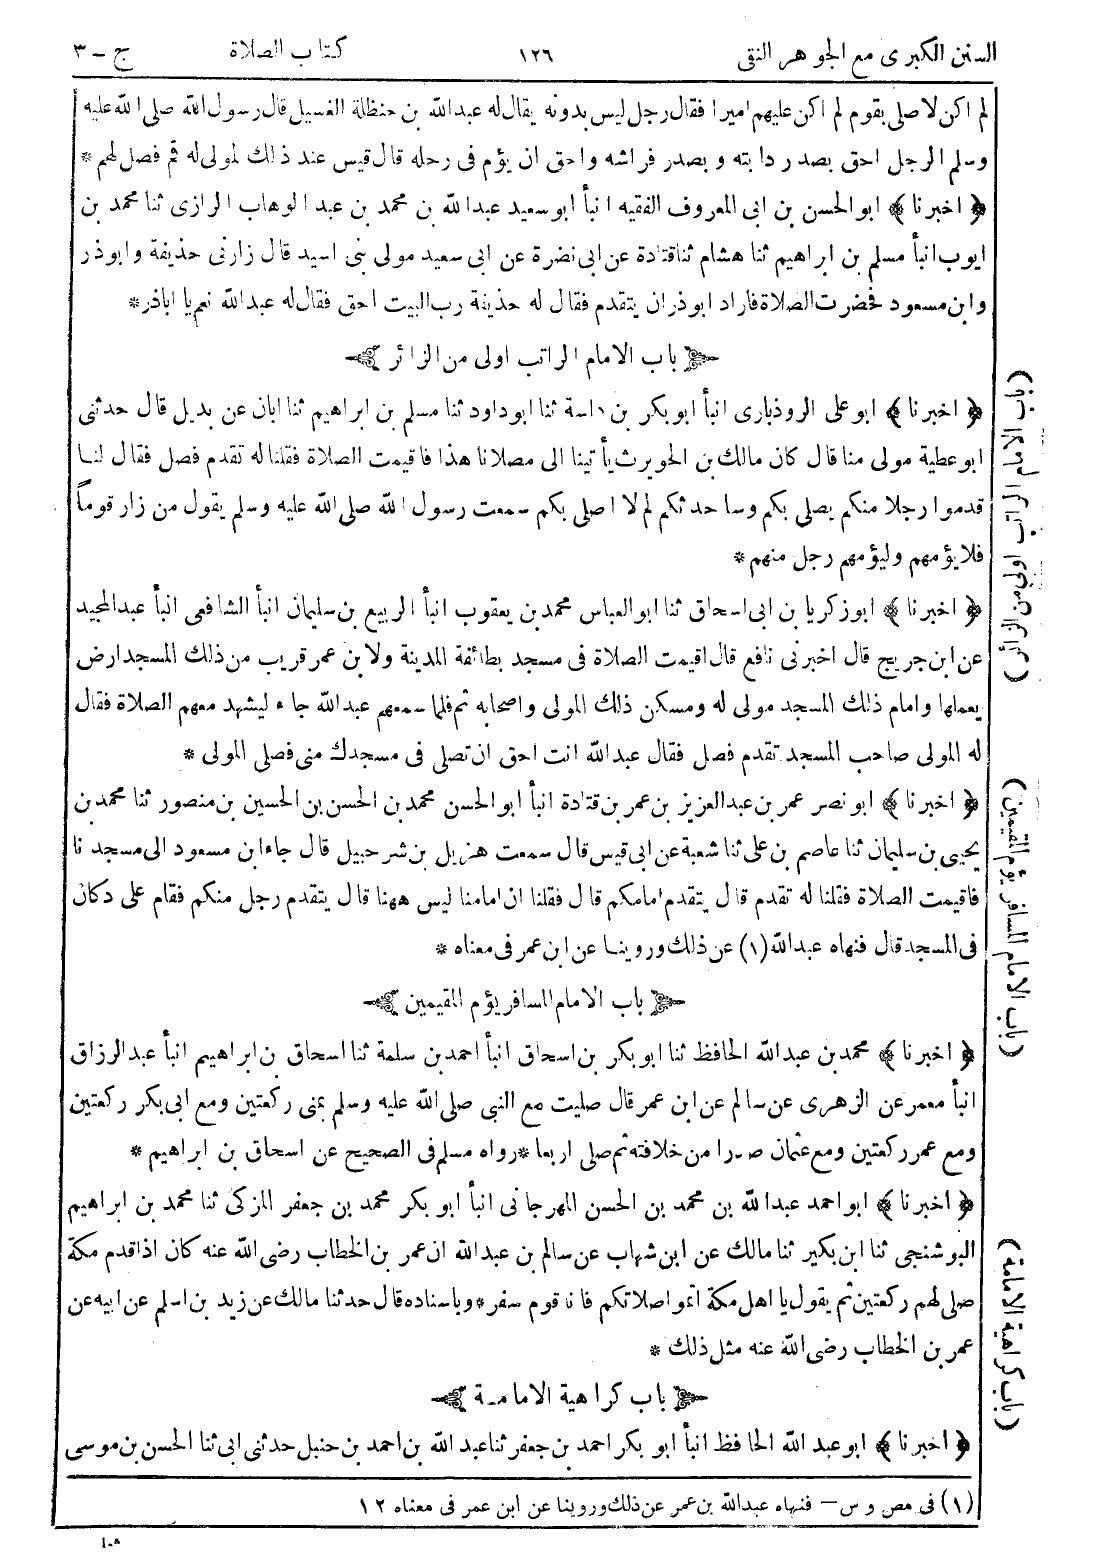 السنن الكبرى مع الجوهر النقى ١٢٦ كتاب الصلاة ج - ٣
لم اكن لاصلى بقوم لم اكن عليهم اميرا فقال رجل ليس بدونه يقال له عبدالله بن حنظلة الغسيل قال رسول الله صلى الله عليه
وسلم الرجل احق بصدر دابته وبصدر فراشه واحق ان يؤم فى رحله قال قيس عند ذلك لمولى له قم فصل لهم *
﴿ اخبرنا ﴾ ابوالحسن بن ابى المعروف الفقيه انبأ ابوسعيد عبدالله بن محمد بن عبد الوهاب الرازى ثنا محمد بن
ايوب انبأ مسلم بن ابراهيم ثنا هشام ثنا قتادة عن ابى نضرة عن ابى سعيد مولى بنى اسيد قال زارنى حذيفة وابوذر
وابن مسعود فحضرت الصلاة فاراد ابوذر ان يتقدم فقال له حذيفة رب البيت احق فقال له عبدالله نعم يا اباذر *
﴿ باب الامام الراتب اولى من الزائر ﴾
﴿ اخبرنا ﴾ ابوعلى الروذبارى انبأ ابوبكر بن داسة ثنا ابوداود ثنا مسلم بن ابراهيم ثنا ابان عن بديل قال حدثنى
ابوعطية مولى منا قال كان مالك بن الحويرث يأتينا الى مصلانا هذا فاقيمت الصلاة فقلنا له تقدم فصل فقال لنا
قدموا رجلا منكم يصلى بكم وساحدثكم لم لا اصلى بكم سمعت رسول الله صلى الله عليه وسلم يقول من زار قوماً
فلا يؤمهم وليؤمهم رجل منهم *
﴿ اخبرنا ﴾ ابوزكريا بن ابى اسحاق ثنا ابوالعباس محمد بن يعقوب انبأ الربيع بن سليمان انبأ الشافعى انبأ عبدالمجيد
عن ابن جريج قال اخبرنى نافع قال اقيمت الصلاة فى مسجد بطائفة المدينة ولابن عمر قريب من ذلك المسجد ارض
يعملها وامام ذلك المسجد مولى له ومسكن ذلك المولى واصحابه ثم فلما سمعهم عبدالله جاء ليشهد معهم الصلاة فقال
له المولى صاحب المسجد تقدم فصل فقال عبدالله انت احق ان تصلى فى مسجدك منى فصلى المولى *
﴿ اخبرنا ﴾ ابو نصر عمر بن عبدالعزيز بن عمر بن قتادة انبأ ابوالحسن محمد بن الحسن بن الحسين بن منصور ثنا محمد بن
يحيى بن سليمان ثنا عاصم بن على ثنا شعبة عن ابى قيس قال سمعت هزيل بن شرحبيل قال جاء ابن مسعود الى مسجدنا
فاقيمت الصلاة فقلنا له تقدم قال يتقدم امامكم قال فقلنا ان امامنا ليس ههنا قال يتقدم رجل منكم فقام على دكان
فى المسجد قال فنهاه عبدالله (١) عن ذلك وروينا عن ابن عمر فى معناه *
﴿ باب الامام المسافر يؤم المقيمين ﴾
﴿ اخبرنا ﴾ محمد بن عبدالله الحافظ ثنا ابوبكر بن اسحاق انبأ احمد بن سلمة ثنا اسحاق بن ابراهيم انبأ عبدالرزاق
انبأ معمر عن الزهرى عن سالم عن ابن عمر قال صليت مع النبى صلى الله عليه وسلم بمنى ركعتين ومع ابى بكر ركعتين
ومع عمر ركعتين ومع عثمان صدرا من خلافته ثم صلى اربعا * رواه مسلم فى الصحيح عن اسحاق بن ابراهيم *
﴿ اخبرنا ﴾ ابواحمد عبدالله بن محمد بن الحسن المهرجانى انبأ ابو بكر محمد بن جعفر المزكى ثنا محمد بن ابراهيم
البوشنجى ثنا ابن بكير ثنا مالك عن ابن شهاب عن سالم بن عبدالله ان عمر بن الخطاب رضى الله عنه كان اذا قدم مكة
صلى لهم ركعتين ثم يقول يا اهل مكة اتموا صلاتكم فانا قوم سفر * وباسناده قال حدثنا مالك عن زيد بن اسلم عن ابيه عن
عمر بن الخطاب رضى الله عنه مثل ذلك *
﴿ باب كراهية الامامة ﴾
﴿ اخبرنا ﴾ ابوعبد الله الحافظ انبأ ابو بكر احمد بن جعفر ثنا عبد الله بن احمد بن حنبل حدثنى ابى ثنا الحسن بن موسى
(١) فى مص و س — فنهاه عبدالله بن عمر عن ذلك وروينا عن ابن عمر فى معناه ١٢
(باب الامام الراتب اولى من الزائر)
(باب الامام المسافر يؤم المقيمين)
(باب كراهية الامامة)